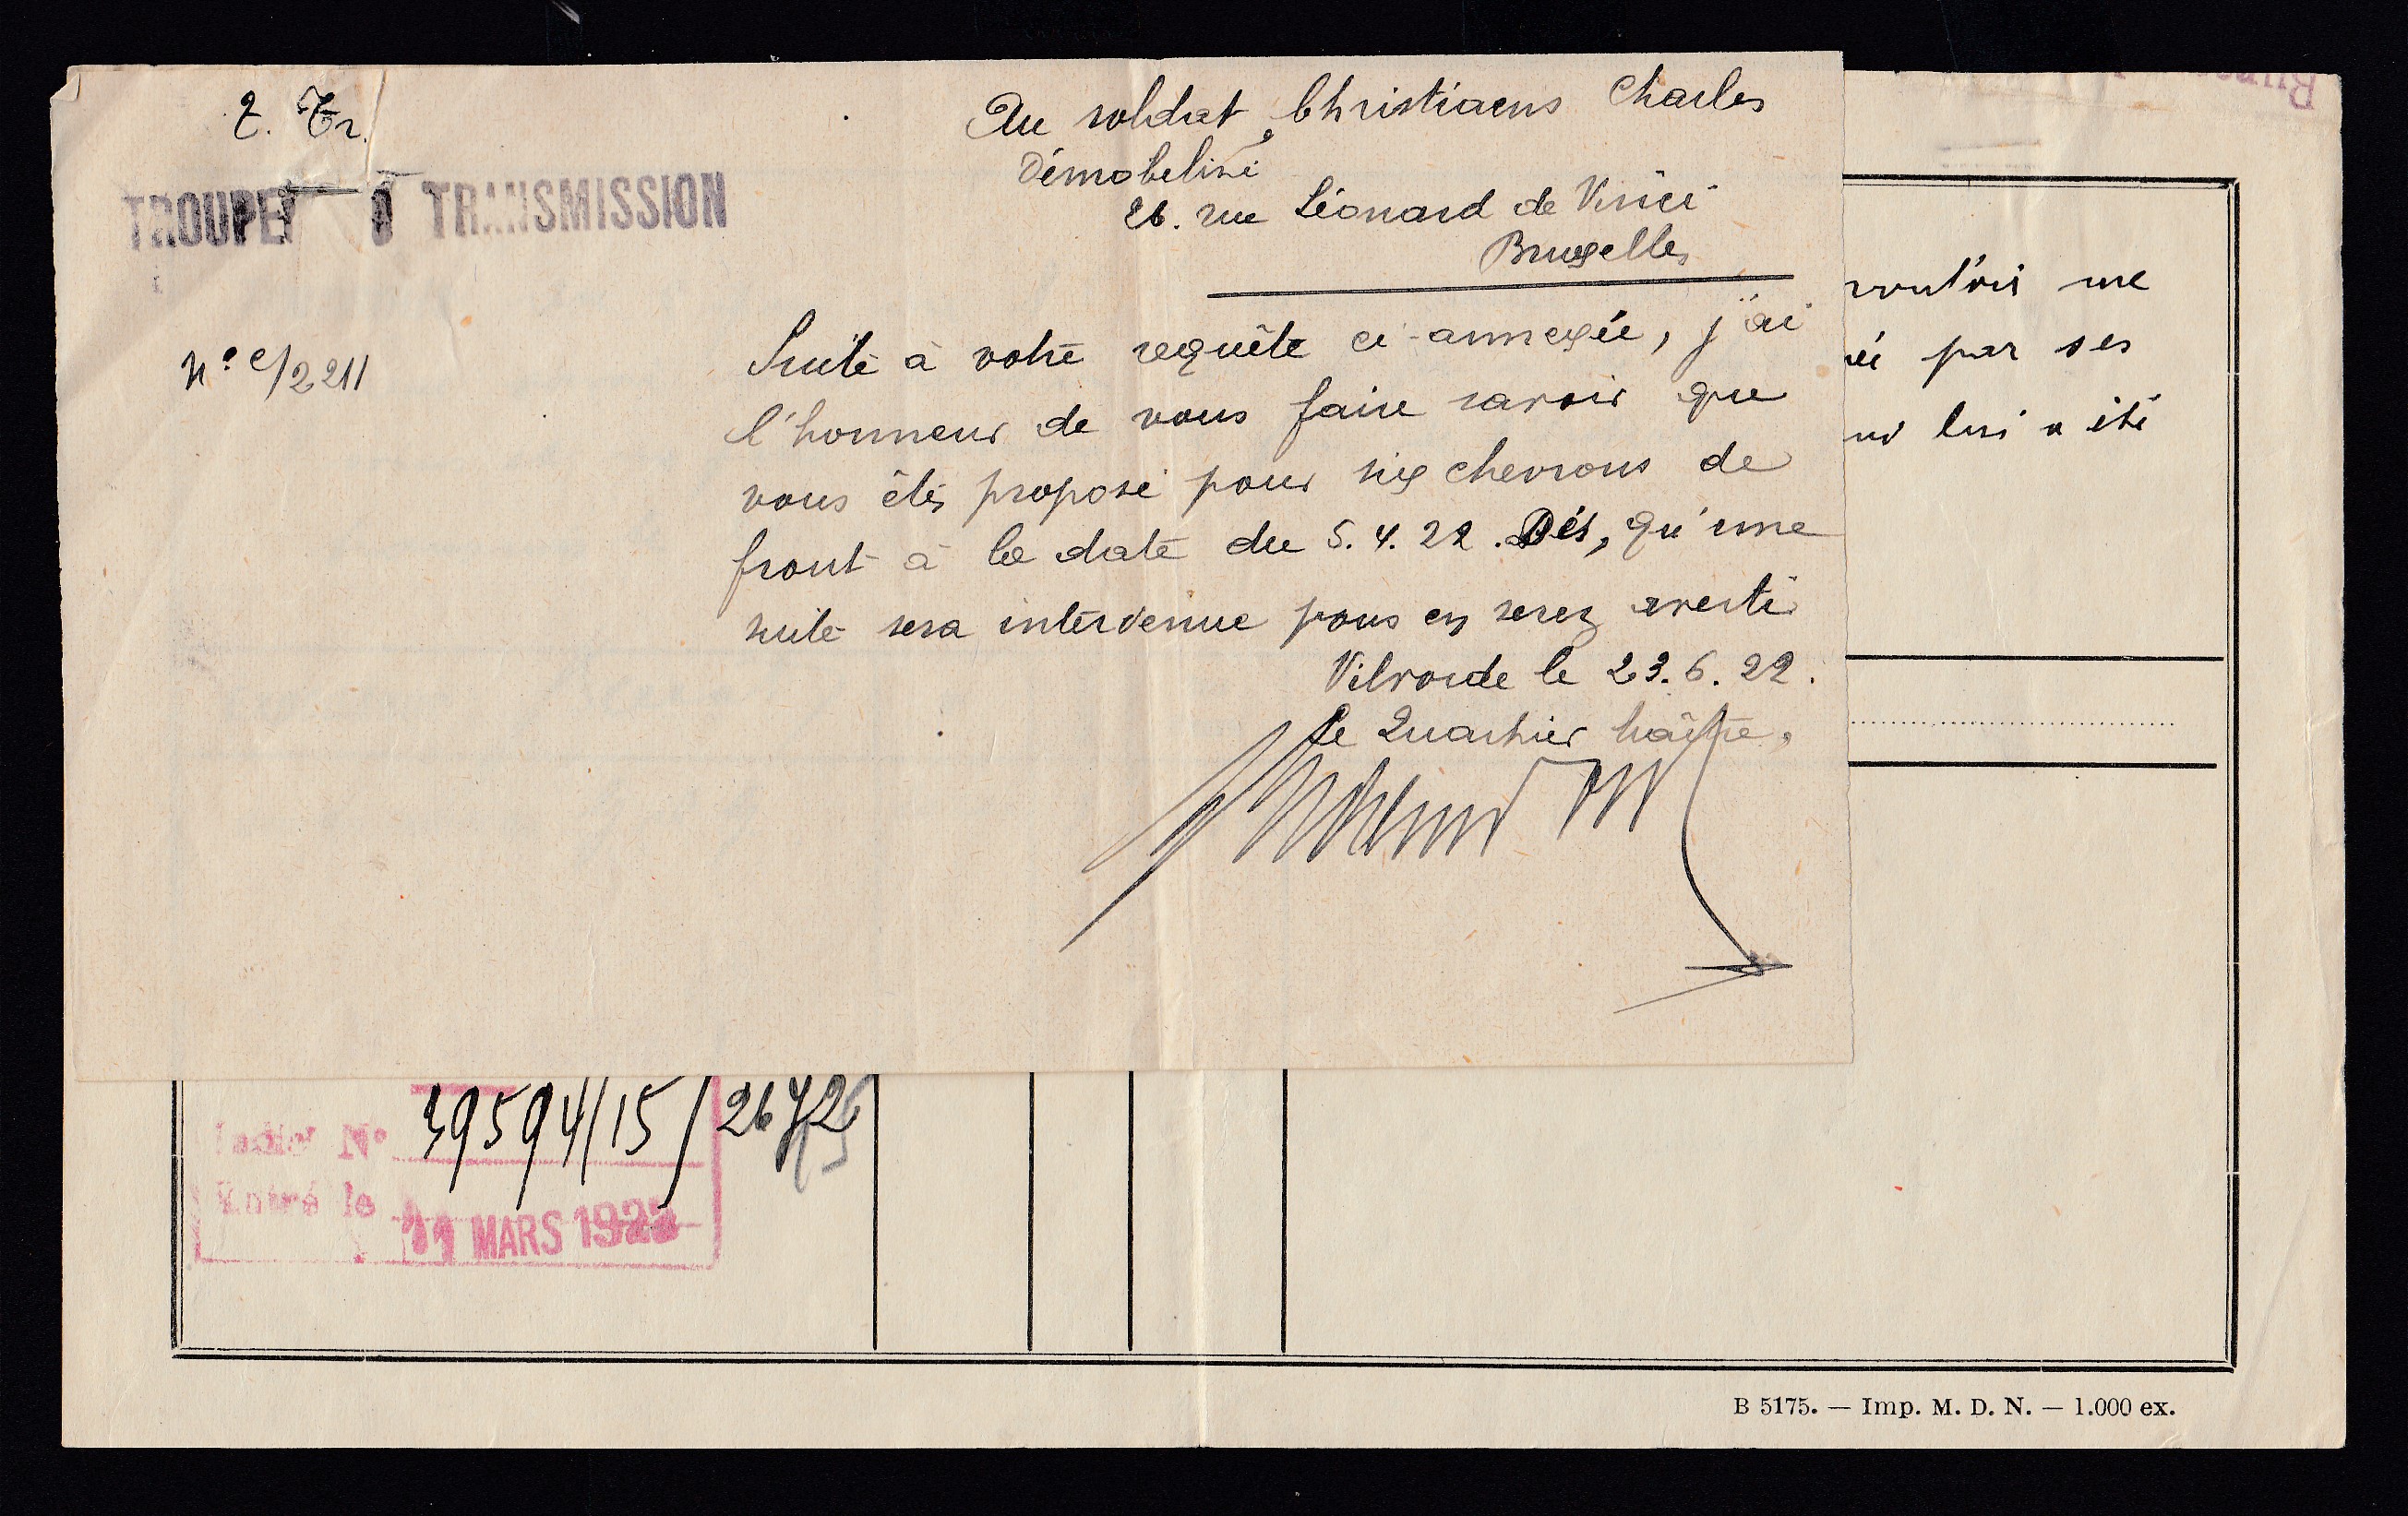 T. Tr.
TROUPES D TRANSMISSION
N° C/2211
Au soldat Christiaens Charles
Démobilisé
26. rue Léonard de Vinci
Bruxelles
Suite à votre requête ci-annexée, j'ai
l'honneur de vous faire savoir que
vous êtes proposé pour six chevrons de
front à la date du 5.4.22. Dès, qu'une
suite sera intervenue vous en serez averti
Vilvorde le 23.6.22.
Le Quartier Maître,
me
par ses
lui a été
N° 39594/15/2672
Entré le 11 MARS 192
B 5175. — Imp. M. D. N. — 1.000 ex.